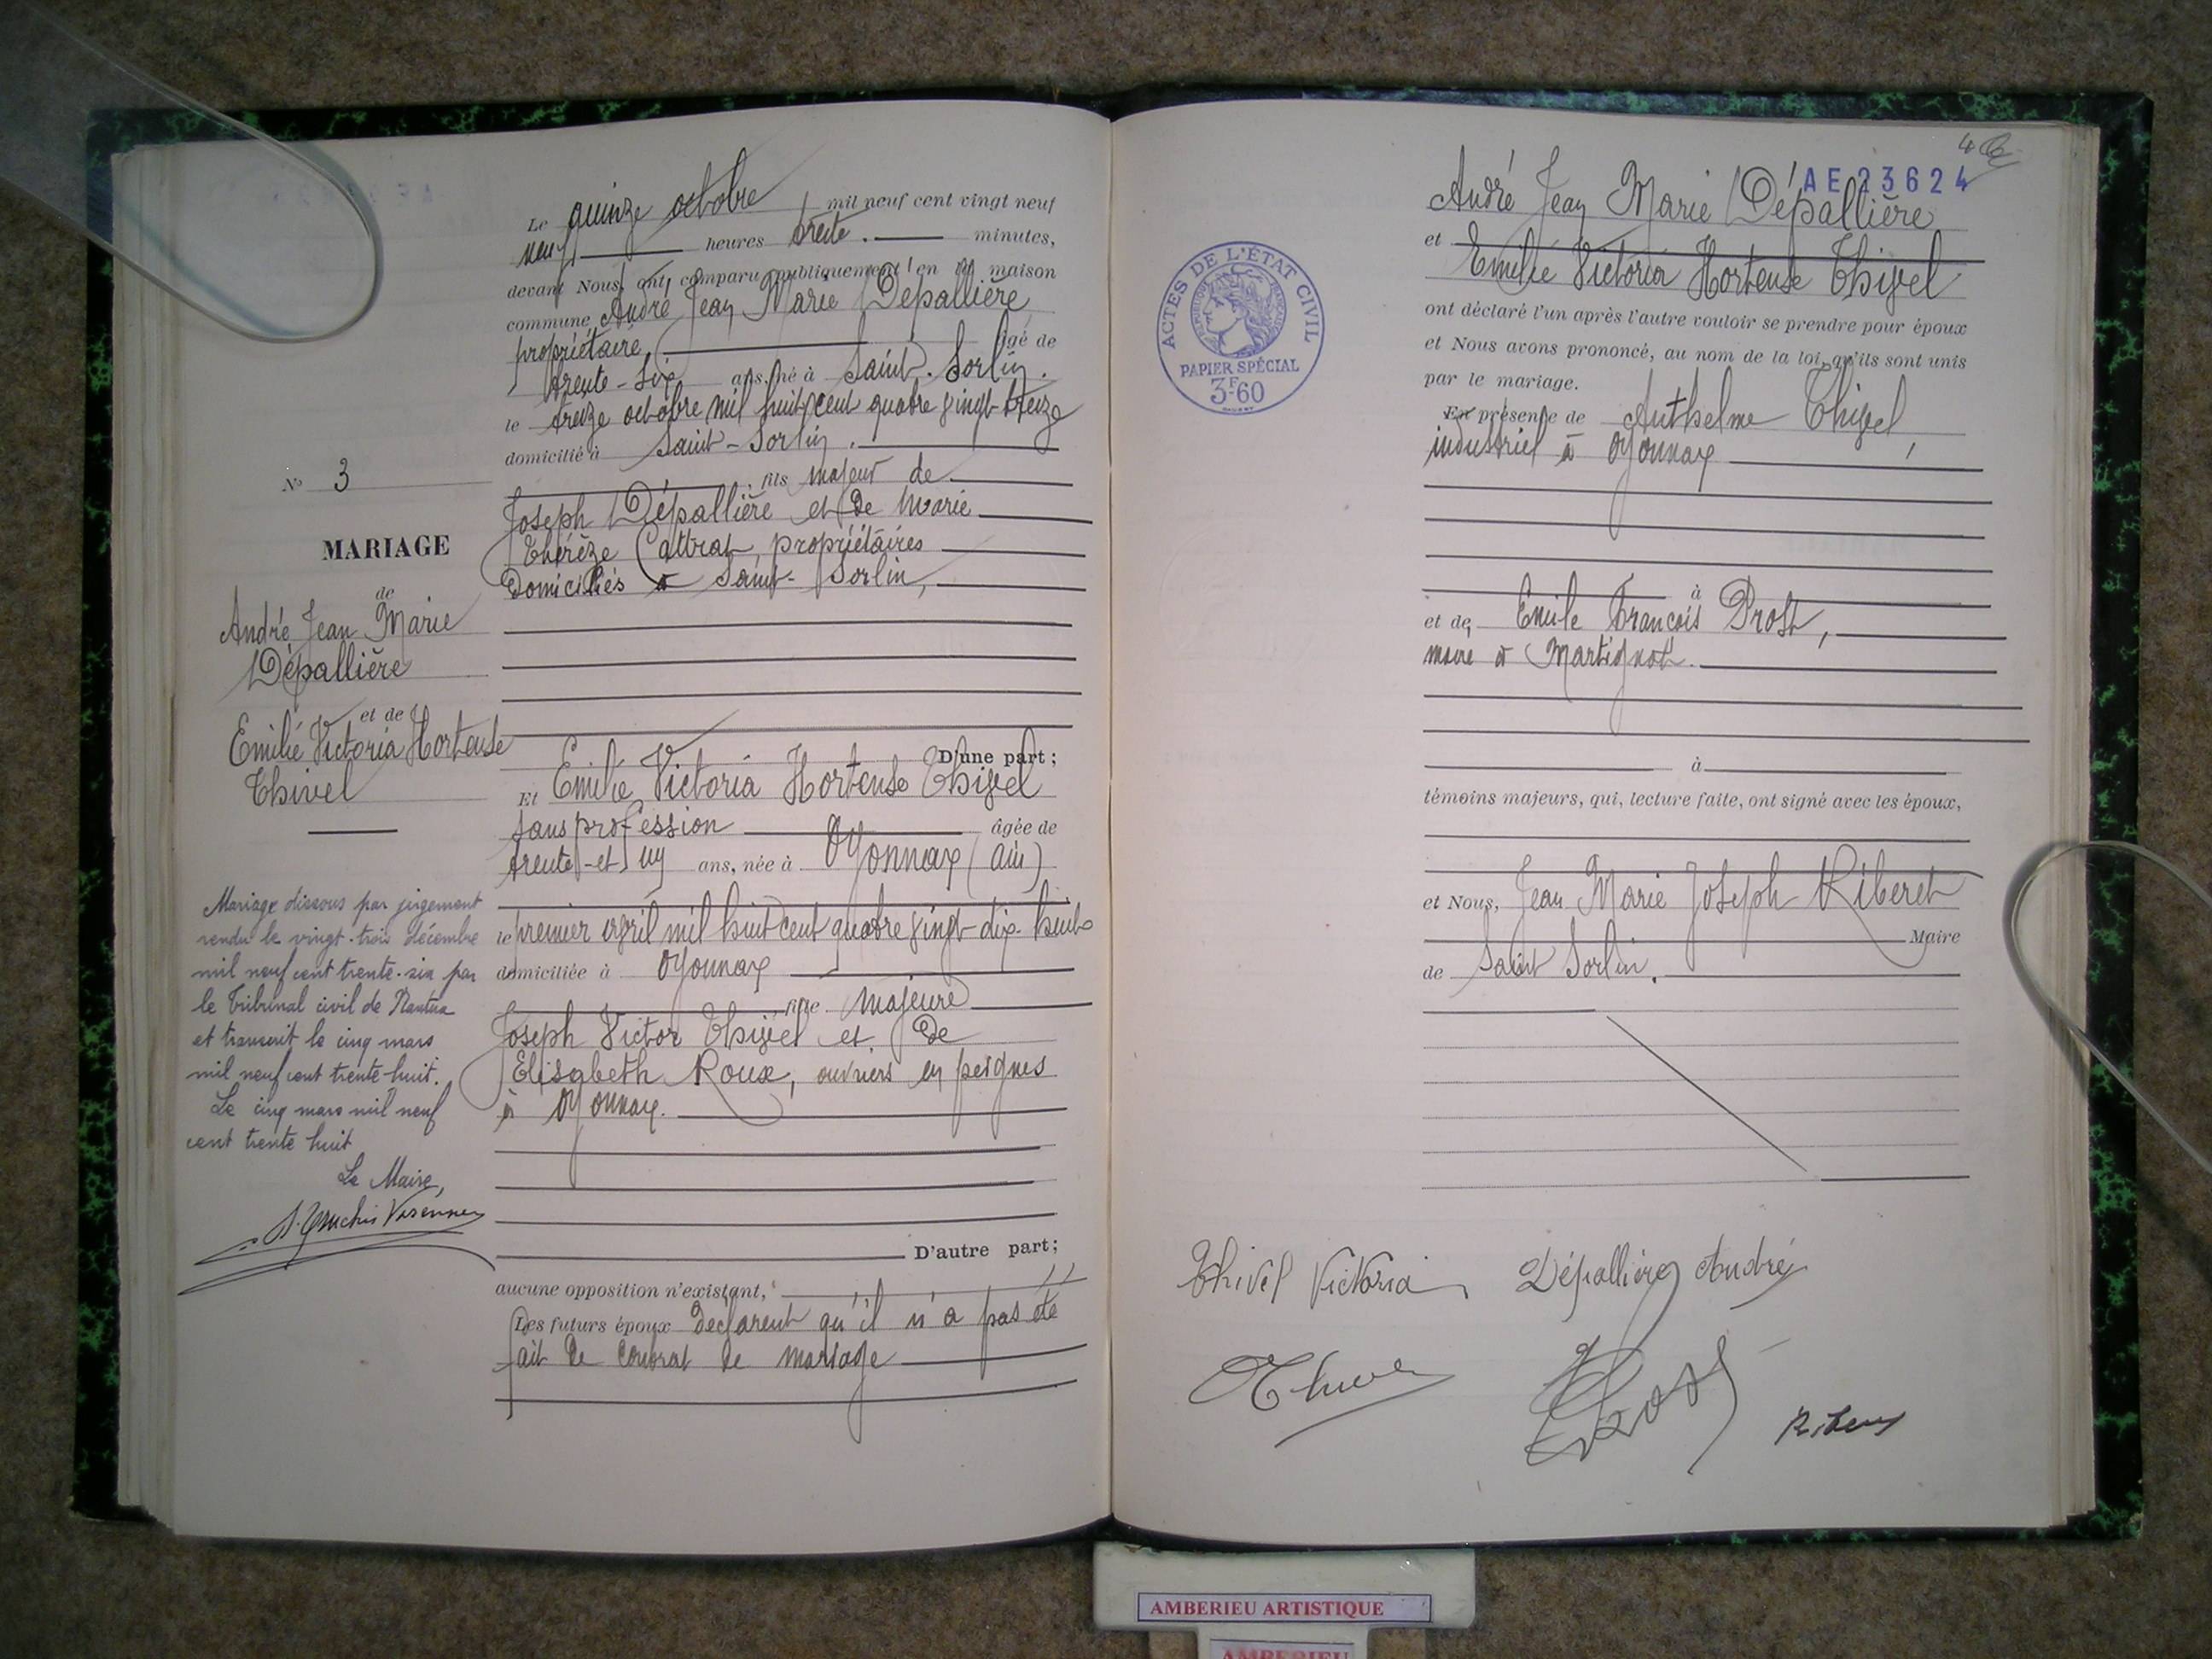 Le quinze octobre mil neuf cent vingt neuf
neuf heures trente. minutes,
devant Nous, ont comparu publiquement en la maison
commune André Jean Marie Dépallière
propriétaire, âgé de
trente-six ans, né à Saint-Sorlin.
le treize octobre mil huit cent quatre vingt-treize
domicilié à Saint-Sorlin.
fils majeur de
Joseph Dépallière et de Marie
Thérèze Cattrat, propriétaires
domiciliés à Saint-Sorlin,
D'une part;
Et Emilie Victoria Hortense Thivel
sans profession âgée de
trente-et un ans, née à Oyonnax (ain)
le premier avril mil huit cent quatre vingt-dix-huit
domiciliée à Oyonnax
fille majeure
Joseph Victor Thivel et de
Elisabeth Roux, ouvriers en peignes
à Oyonnax.
D'autre part;
aucune opposition n'existant,
Les futurs époux déclarent qu'il n'a pas été
fait de contrat de mariage
N° 3
MARIAGE
de
André Jean Marie
Dépallière
et de
Emilie Victoria Hortense
Thivel
Mariage dissous par jugement
rendu le vingt-trois décembre
mil neuf cent trente-six par
le Tribunal civil de Nantua
et transcrit le cinq mars
mil neuf cent trente huit.
Le cinq mars mil neuf
cent trente huit
Le Maire,
4
AE 23624
ACTES DE L'ÉTAT CIVIL
RÉPUBLIQUE FRANÇAISE
PAPIER SPÉCIAL
3F60
André Jean Marie Dépallière
et
Emilie Victoria Hortense Thivel
ont déclaré l'un après l'autre vouloir se prendre pour époux
et Nous avons prononcé, au nom de la loi, qu'ils sont unis
par le mariage.
En présence de Anthelme Thivel,
industriel à Oyonnax
à
et de Emile François Prost,
maire à Martignat.
à
témoins majeurs, qui, lecture faite, ont signé avec les époux,
et Nous, Jean Marie Joseph Riberet
Maire
de Saint Sorlin.
Thivel Victoria Dépallière André
Prost
AMBERIEU ARTISTIQUE
AMBERIEU